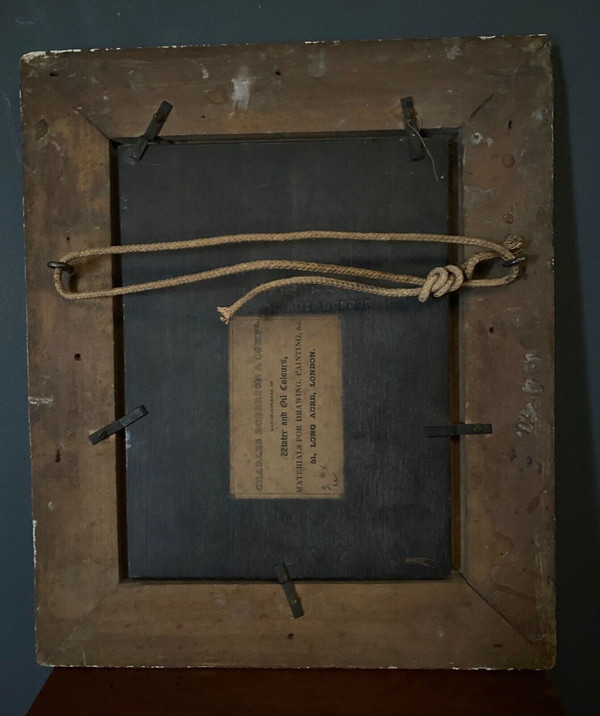 ACRE LONDON
CHARLES ROBERSON & COMPY.
MANUFACTURERS OF
Water and Oil Colours,
MATERIALS FOR DRAWING, PAINTING, &c.
51, LONG ACRE, LONDON.